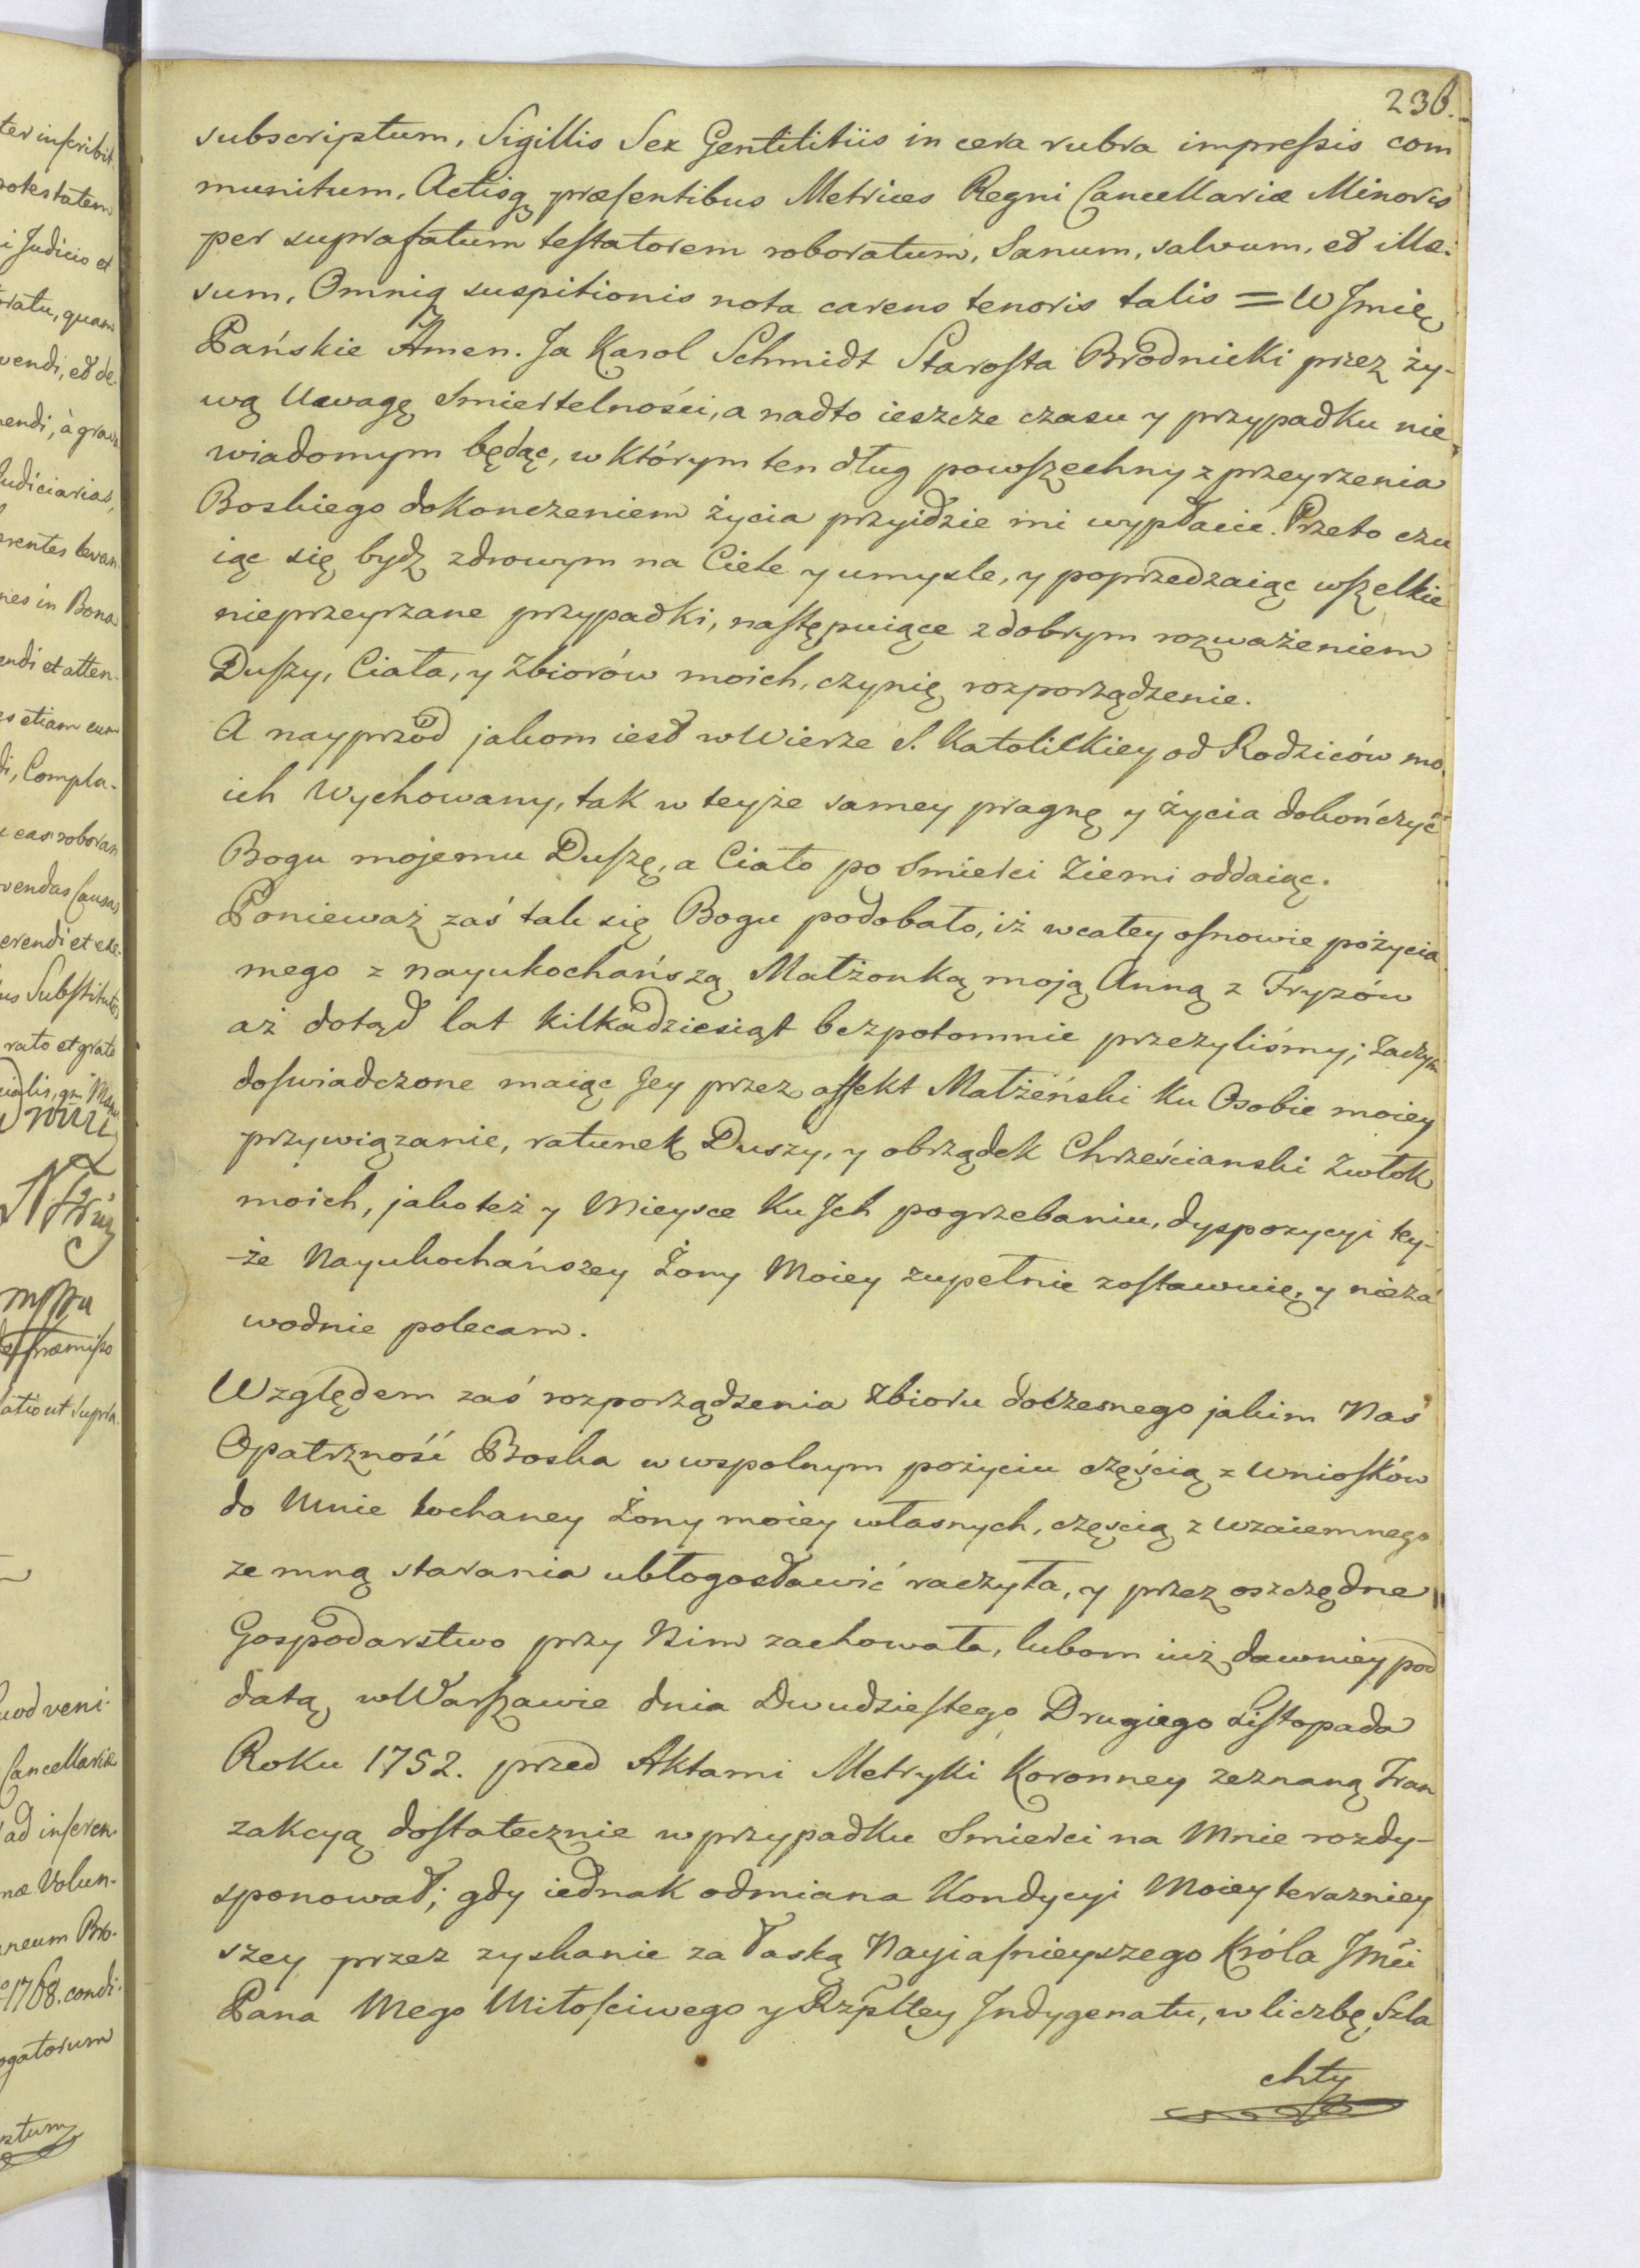 236.
subscriptum, Sigillis Sex Gentilitiis in cera rubra impressis com
munitum, Actisq præsentibus Metrices Regni Cancellariæ Minoris
per suprafatum testatorem roboratum, Sanum, salvum, et illæ:
sum, Omniq suspitionis nota carens tenoris talis = W Jmię
Pańskie Amen. Ja Karol Schmidt Starosta Brodnicki przez ży-
wą Uwagę Smiertelności, a nadto ieszcze czasu y przypadku nie
wiadomym będąc, w którym ten dług powszechny z przeyrzenia
Boskiego dokonczeniem życia przyidzie mi wypłacic. Przeto czu
iąc się bydz zdrowym na Ciele y umysle, y poprzedzaiąc wszelkie
nieprzeyrzane przypadki, następuiące z dobrym rozważeniem
Duszy, Ciała, y Zbiorów moich, czynię rozporządzenie.
A nayprzód jakom iest w Wierze S. Katolickiey od Rodziców mo.
ich Wychowany, tak w teyże samey pragnę y życia dokończyć
Bogu mojemu Duszę, a Ciało po Smierci Ziemi oddaiąc.
Ponieważ zaś tak się Bogu podobało, iż w całey osnowie pożycia
mego z nayukochańszą Małżonką moją Anną z Fryzów
aż dotąd lat kilkadziesiąt bezpotomnie przeżyliśmy; zaczym
doswiadczone maiąc Jey przez affekt Małżeński ku Osobie moiey
przywiązanie, ratunek Duszy, y obrządek Chrześcianski Zwłok
moich, jako też y Mieysce ku Jch pogrzebaniu, dyspozycyi tey-
-że Nayukochańszey Żony Moiey zupełnie zostawuię, y nieza
wodnie polecam.
Względem zaś rozporządzenia Zbioru doczesnego jakim Nas
Opatrzność Boska w wspolnym pożyciu częścią z Wniosków
do Mnie kochaney Żony moiey własnych, częscią z wzaiemnego
ze mną starania ubłogosławić raczyła, y przez oszczędne
Gospodarstwo przy Nim zachowała, lubom iuż dawniey pod
datą w Warszawie dnia Dwudziestego Drugiego Listopada
Roku 1752. przed Aktami Metryki Koronney zeznaną Tran
zakcyą dostatecznie w przypadku Smierci na Mnie rozdy-
sponował; gdy iednak odmiana Kondycyi Moiey terazniey
szey przez zyskanie za łaską Nayiasnieyszego Króla Jmći
Pana Mego Miłościwego y Rzpltey Jndygenatu, w liczbę Szla
chty